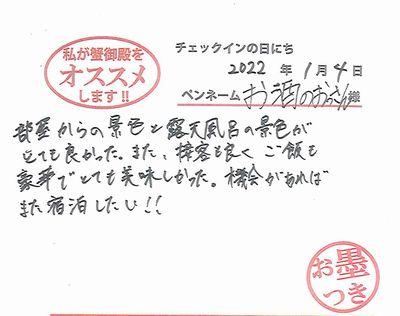 私が蟹御殿を
オススメ
します!!
チェックインの日にち
2022 年 1月 4日
ペンネーム お酒のおっさん様
部屋からの景色と露天風呂の景色が
とても良かった。また、接客も良く ご飯も
豪華でとても美味しかった。機会があれば
また宿泊したい!!
お墨
つき